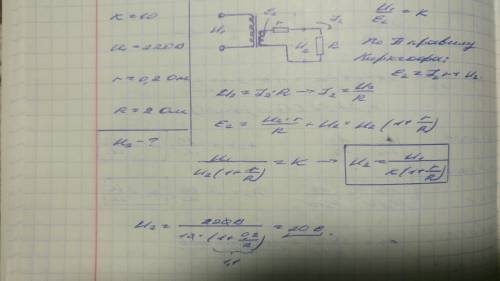 K = 10
U₁ = 220 В
r = 0,2 Ом
R = 2 Ом
U₂ - ?
U₁ E₂ r I₂ U₂ R
U₁/E₂ = K
По II правилу
Кирхгофа:
E₂ = I₂ r + U₂
U₂ = I₂·R → I₂ = U₂/R
E₂ = U₂·r/R + U₂ = U₂ (1 + r/R)
U₁/(U₂(1 + r/R)) = K → U₂ = U₁/(K(1 + r/R))
U₂ = 220 В/(10·(1 + 0,2/2)) = 20 В.
1,1
=